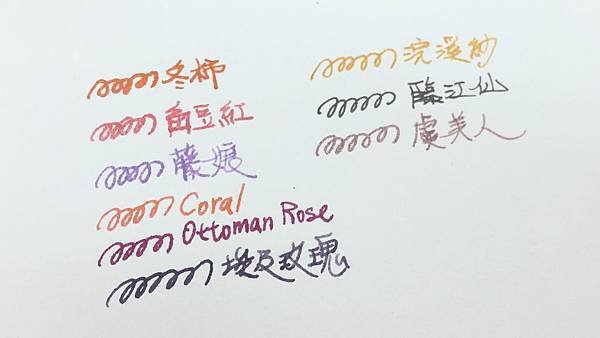 冬柿
向豆紅
藤娘
Coral
Ottoman Rose
埃及玫瑰
浣溪紗
臨江仙
虞美人